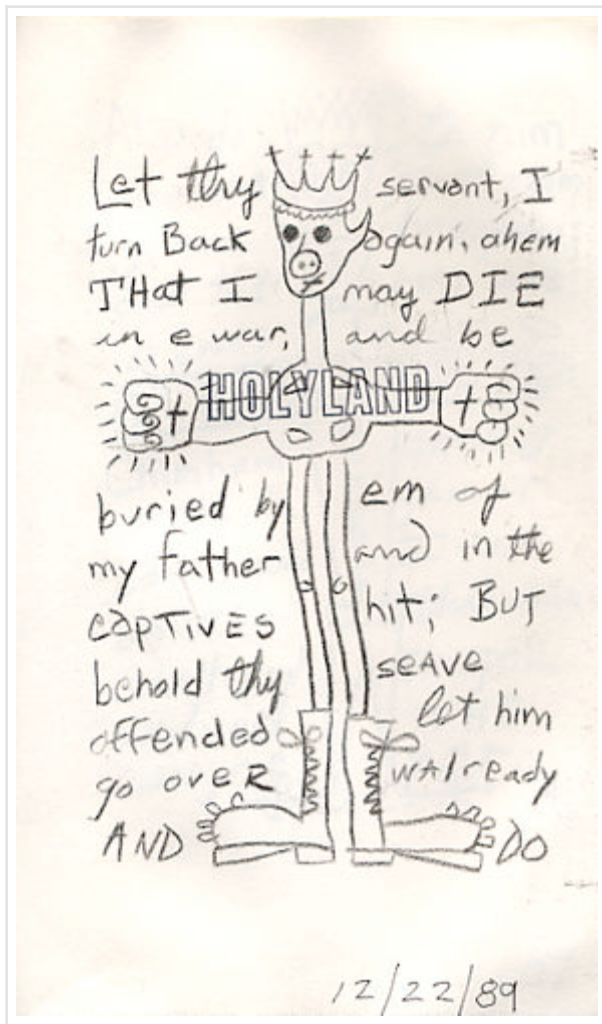 Let thy servant, I
turn Back again. ahem
THat I may DIE
in e war, and be
HOLYLAND
buried by em of
my father and in the
CAPTIVES hit; BUT
behold thy seAve
offended let him
go oveR WAlready
AND DO
12/22/89